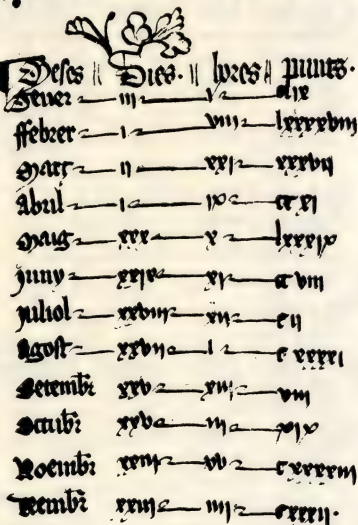 Meses || Dies · || hores || punts ·
Gener iii v clix
ffebrer i viii lxxxxviii
Març ii xxi xxxvii
Abril i ix cc xi
Maig xxx x lxxxix
Juny xxix xi cc viii
Juliol xxviii xii c ii
Agost xxvii i c xxxxi
Setembr xxv xiii viii
Octubr xxv iii xix
Noembr xxiii xv c xxxxiii
xxiii iiii cxxxii ·